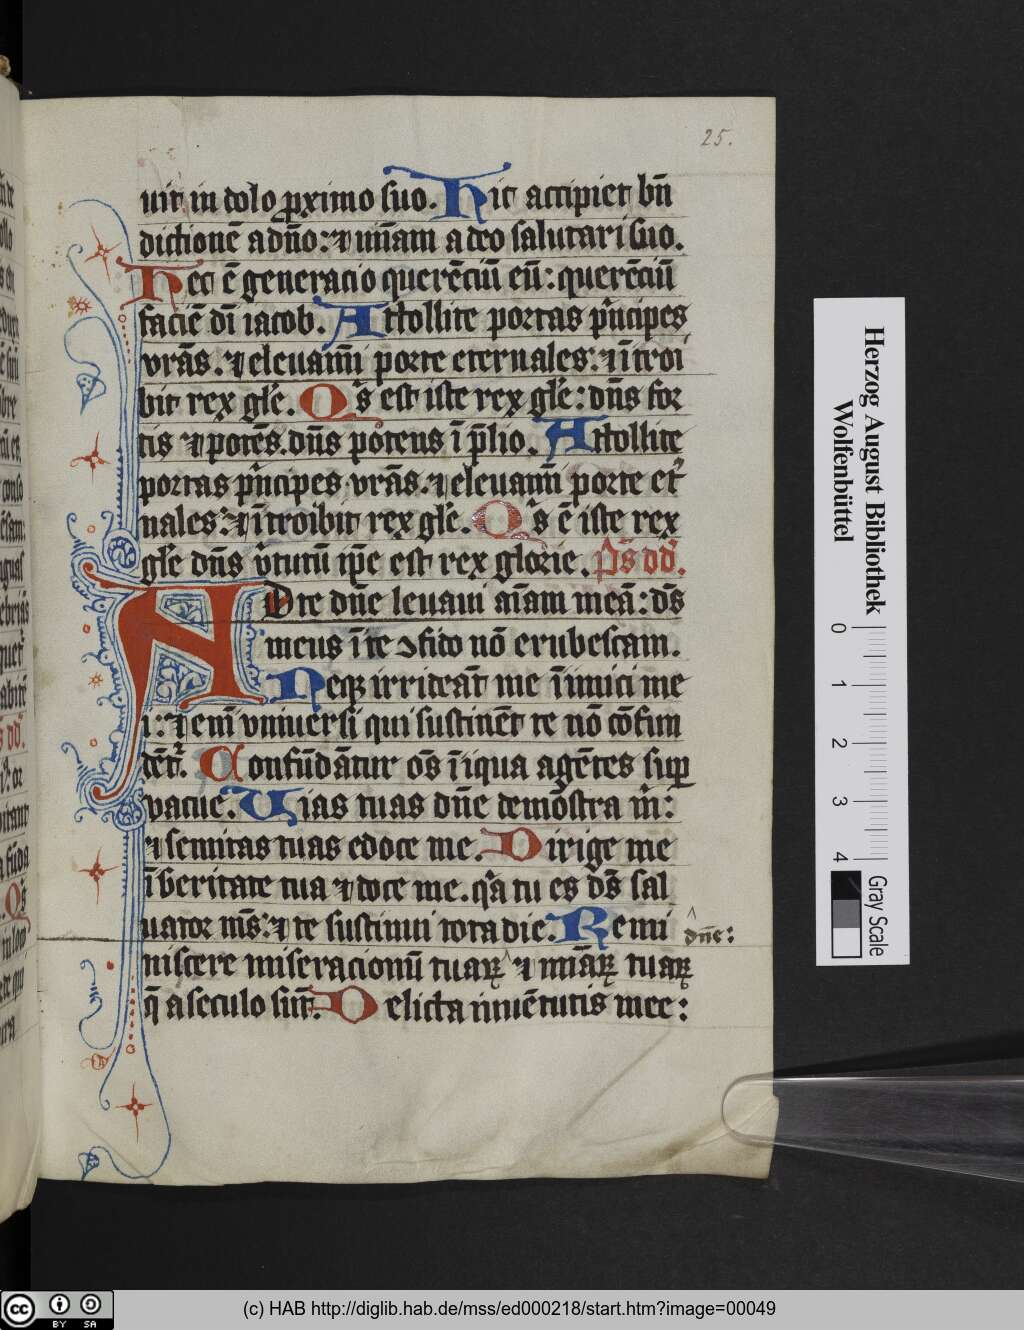 25.
uit in dolo ꝓximo suo. Hic accipiet bn̄
dictionē a dn̄o: ⁊ mīam a deo salutari suo.
Hec ē generacio querēciū eū: querēciū
faciē dī iacob. Attollite portas pͥncipes
vrās. ⁊ eleuamī porte eternales: ⁊ ītroi
bit rex gl̄e. Qͥs est iste rex gl̄e: dn̄s for
tis ⁊ potēs. dn̄s potens ī p̄lio. Attollite
portas pͥncipes vrās. ⁊ eleuamī porte et͛
nales: ⁊ ītroibit rex gl̄e. Qͥs ē iste rex
gl̄e dn̄s v͛tutū ip̄e est rex glorie. Ps̄ dd̄.
AD te dn̄e leuaui aīam meā: ds̄
meus ī te ꝯfido nō erubescam.
Neqꝫ irrideāt me īimici me
i: ⁊ enī vniuersi qui sustinēt te nō cōfun
dēt᷑. Confūdātur oēs īiqua agētes suꝑ
vacue. Uias tuas dn̄e demōstra m̄:
⁊ semitas tuas edoce me. Dirige me
ī veritate tua ⁊ doce me. qͥa tu es ds̄ sal
uator ms̄: ⁊ te sustinui tota die. Remi
dn̄e:
niscere miseracionū tuaꝝ ⁊ mīaꝝ tuaꝝ
q̄ a seculo sūt. Delicta iuuētutis mee:
Herzog August Bibliothek
Wolfenbüttel
0 1 2 3 4
Gray Scale
cc BY SA
(c) HAB http://diglib.hab.de/mss/ed000218/start.htm?image=00049